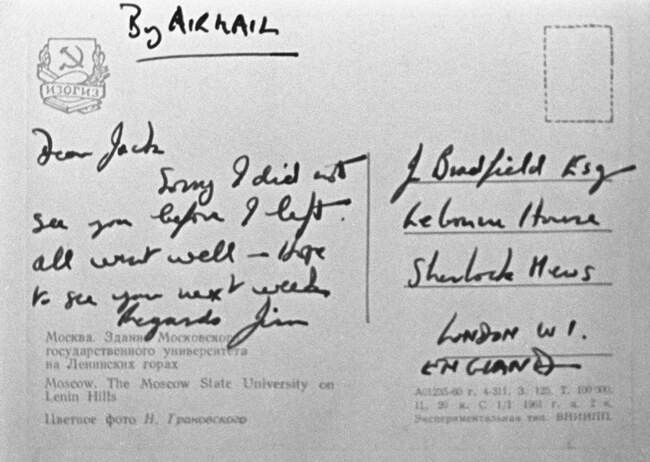 By AIRMAIL
ИЗОГИЗ
Dear Jack
Sorry I did not
see you before I left.
all went well – Hope
to see you next week
Regards Jim
J Bradfield Esq
Lebonum House
Sherlock Mews
LONDON W1.
ENGLAND
Москва. Здание Московского
государственного университета
на Ленинских горах
Moscow. The Moscow State University on
Lenin Hills
Цветное фото Н. Грановского
А01235-60 г. 4-311. З. 125. Т. 100 000.
Ц. 20 к. С 1/I 1961 г. ц. 2 к.
Экспериментальная тип. ВНИИПП.